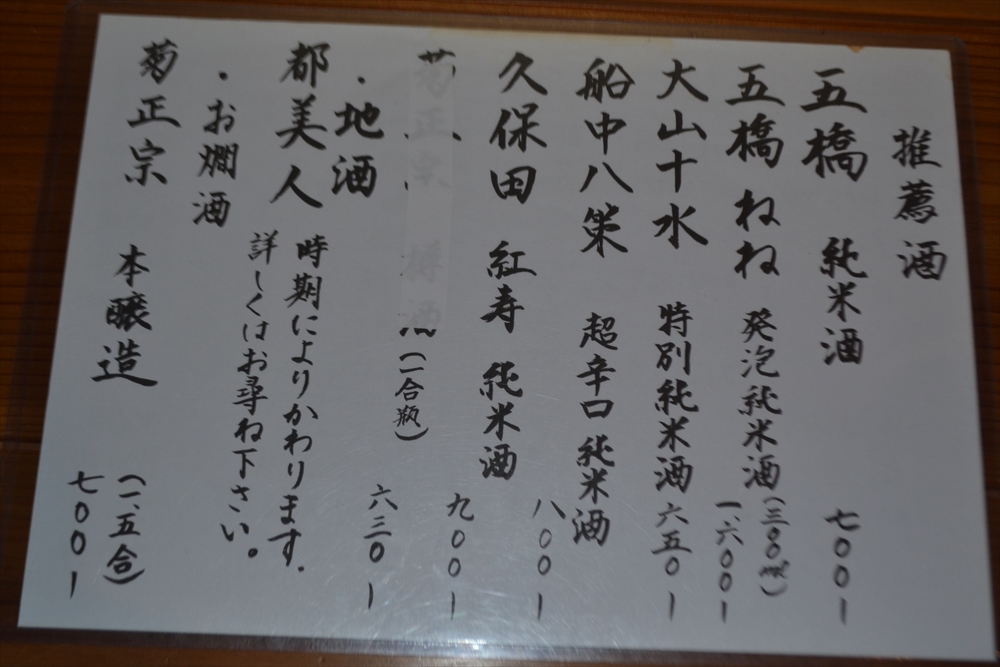 推薦酒
五橋 純米酒 七〇〇ー
五橋 ねね 発泡純米酒(三〇〇㎖) 一、六〇〇ー
大山十水 特別純米酒 六五〇ー
船中八策 超辛口純米酒 八〇〇ー
久保田 紅寿 純米酒 九〇〇ー
菊正宗 樽酒 (一合瓶) 六三〇ー
・地酒
都美人 時期によりかわります.
詳しくはお尋ね下さい。
・お燗酒
菊正宗 本醸造 (一、五合) 七〇〇ー